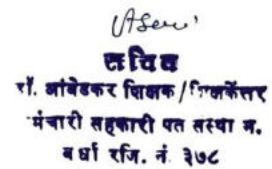 सचिव
रॉ. आंबेडकर शिक्षक / शिक्षकेत्तर
मंचारी सहकारी पत सस्था म.
बर्धा रजि. नं. ३७८